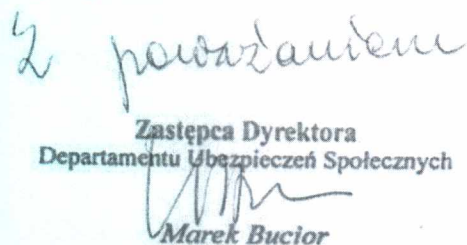 Z poważaniem
Zastępca Dyrektora
Departamentu Ubezpieczeń Społecznych
Marek Bucior